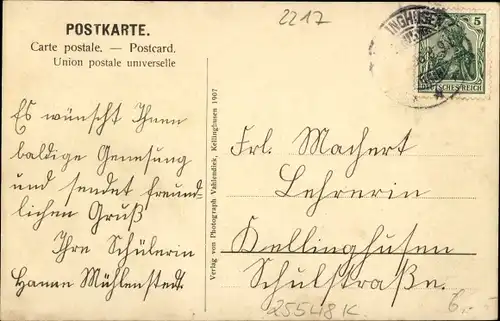 POSTKARTE.
Carte postale. — Postcard.
Union postale universelle
2217
5
DEUTSCHES REICH
Es wünscht Ihnen
baldige Genesung
und sendet freund-
lichen Gruß
Ihre Schülerin
Hanne Mühlenstedt.
Verlag von Photograph Vahlendiek, Kellinghusen 1907
Frl. Machert
Lehrerin
Kellinghusen
Schulstraße.
25548 K
6.-